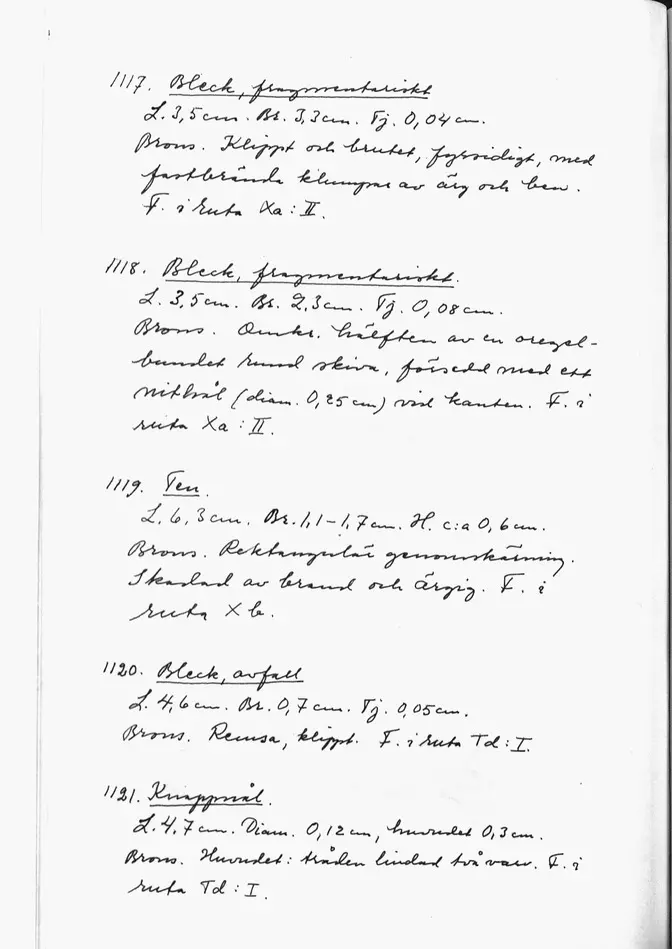 1117. Bleck, fragmentariskt
L. 3,5 cm. Br. 3,3 cm. Tj. 0,04 cm.
Brons. Klippt och brutet, fyrsidigt, med
fastbrända klumpar av ärg och ben.
F. i ruta Xa : II.
1118. Bleck, fragmentariskt.
L. 3,5 cm. Br. 2,3 cm. Tj. 0,08 cm.
Brons. Omkr. hälften av en oregel-
bundet rund skiva, försedd med ett
nithål (diam. 0,25 cm) vid kanten. F. i
ruta Xa : II.
1119. Ten.
L. 6,3 cm. Br. 1,1–1,7 cm. H. c:a 0,6 cm.
Brons. Rektangulär genomskärning.
Skadad av brand och ärgig. F. i
ruta Xb.
1120. Bleck, avfall
L. 4,6 cm. Br. 0,7 cm. Tj. 0,05 cm.
Brons. Remsa, klippt. F. i ruta Td : I.
1121. Knappnål.
L. 4,7 cm. Diam. 0,12 cm, huvudet 0,3 cm.
Brons. Huvudet: tråden lindad två varv. F. i
ruta Td : I.